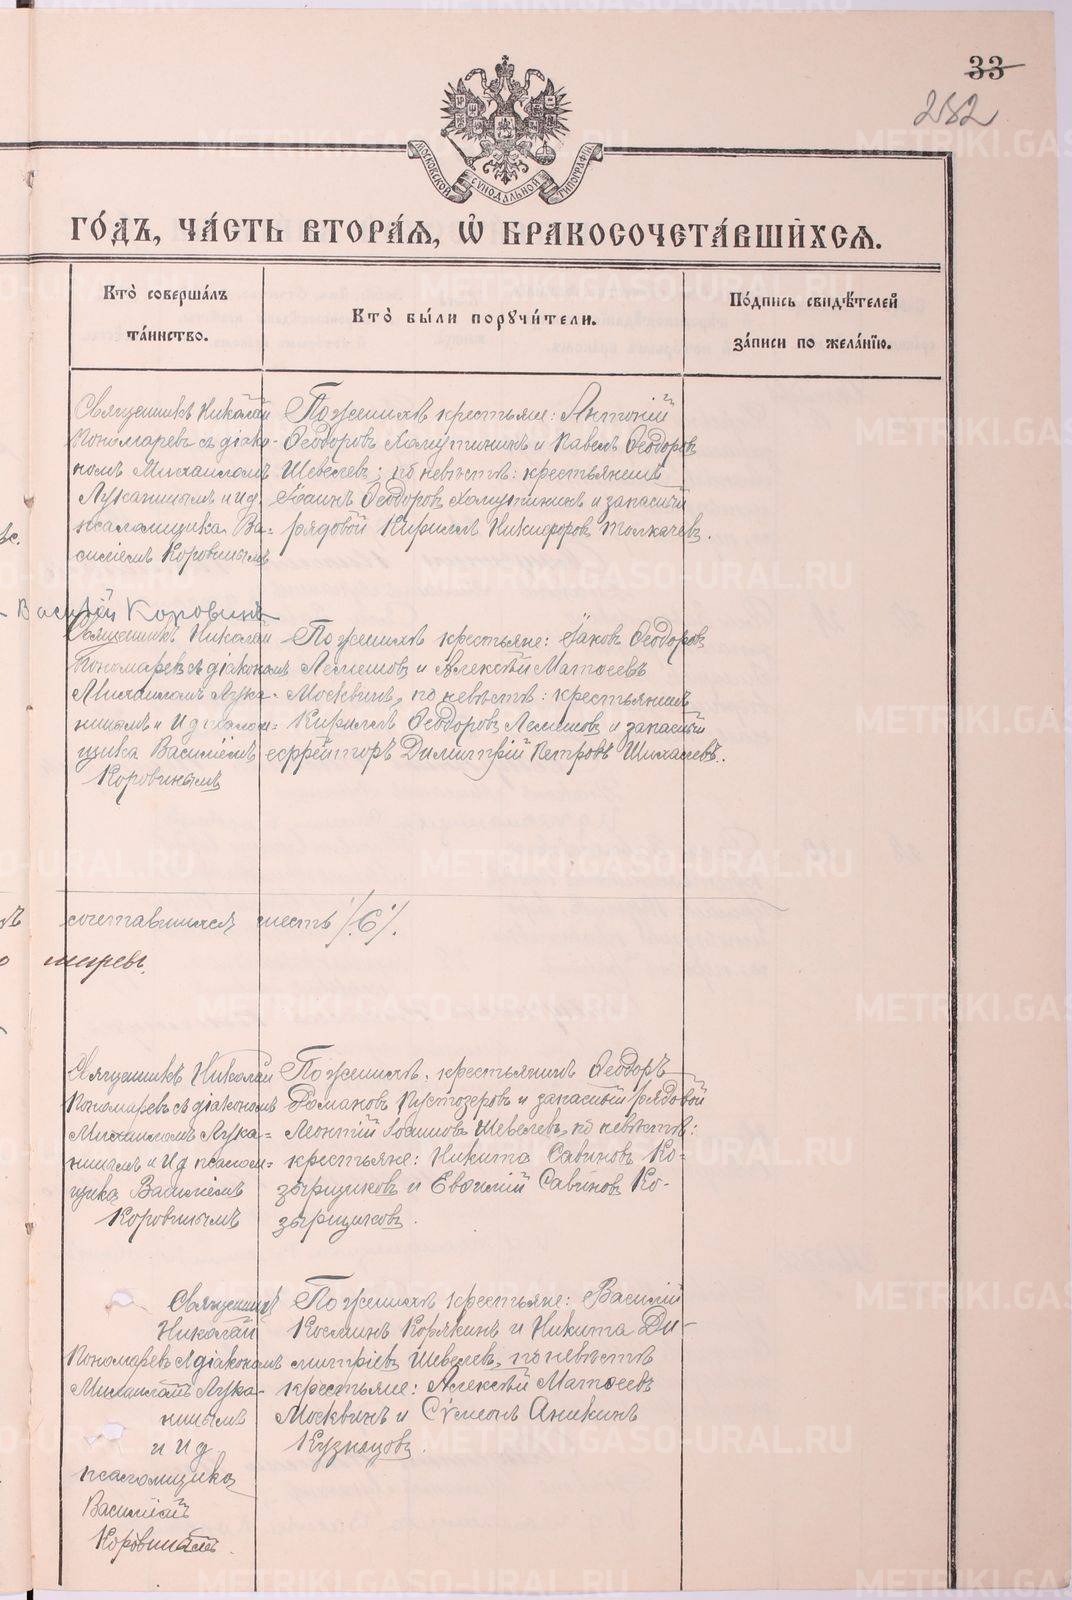 33
282
МОСКОВСКОЙ СѴНОДАЛЬНОЙ ТИПОГРАФІИ
ГО́ДЪ, ЧА́СТЬ ВТОРА́Я, Ѡ҆ БРАКОСОЧЕТА́ВШИХСЯ.
Кто̀ соверша́лъ
та́инство.
Кто̀ бы́ли порꙋчи́тели.
По́дпись свидѣ́телей
за́писи по жела́нїю.
Священникъ Николай
Пономаревъ съ діако-
номъ Михаиломъ
Луканинымъ и и д
псаломщика Ва-
силіемъ Коровинымъ
По женихѣ крестьяне: Антоній
Ѳеодоровъ Хомутининъ и Павелъ Ѳеодоровъ
Шевелевъ; по невѣстѣ: крестьянинъ
Іоаннъ Ѳеодоровъ Хомутининъ и запасный
рядовой Кириллъ Никифоровъ Толкачевъ.
Василій Коровинъ
Священникъ Николай
Пономаревъ съ діакономъ
Михаиломъ Лука-
нинымъ и И д псалом-
щика Василіемъ
Коровинымъ
По женихѣ крестьяне: Іаковъ Ѳеодоровъ
Лемешовъ и Алексѣй Матѳеевъ
Москвинъ, по невѣстѣ: крестьянинъ
Кириллъ Ѳеодоровъ Лемешовъ и запасный
ефрейторъ Димитрій Петровъ
сочетавшихся шесть /.6./.
маревъ.
Священникъ Николай
Пономаревъ съ діакономъ
Михаиломъ Лука-
нинымъ и И д псалом-
щика Василіемъ
Коровинымъ
По женихѣ: крестьянинъ Ѳеодоръ
Романовъ Пустозеровъ и запасный рядовой
Леонтій Іоанновъ Шевелевъ, по невѣстѣ:
крестьяне: Никита Савиновъ Ко-
зырщиковъ и Евѳимій Савиновъ Ко-
зырщиковъ.
Священникъ
Николай
Пономаревъ съ діакономъ
Михаиломъ Лука-
нинымъ
и И д
псаломщика
Василіемъ
Коровинымъ.
По женихѣ крестьяне: Василій
Косминъ Корякинъ и Никита Ди-
митріевъ Шевелевъ, по невѣстѣ
крестьяне: Алексѣй Матѳеевъ
Москвинъ и Сѵмеонъ Аникинъ
Кузнецовъ.
METRIKI.GASO-URAL.RU